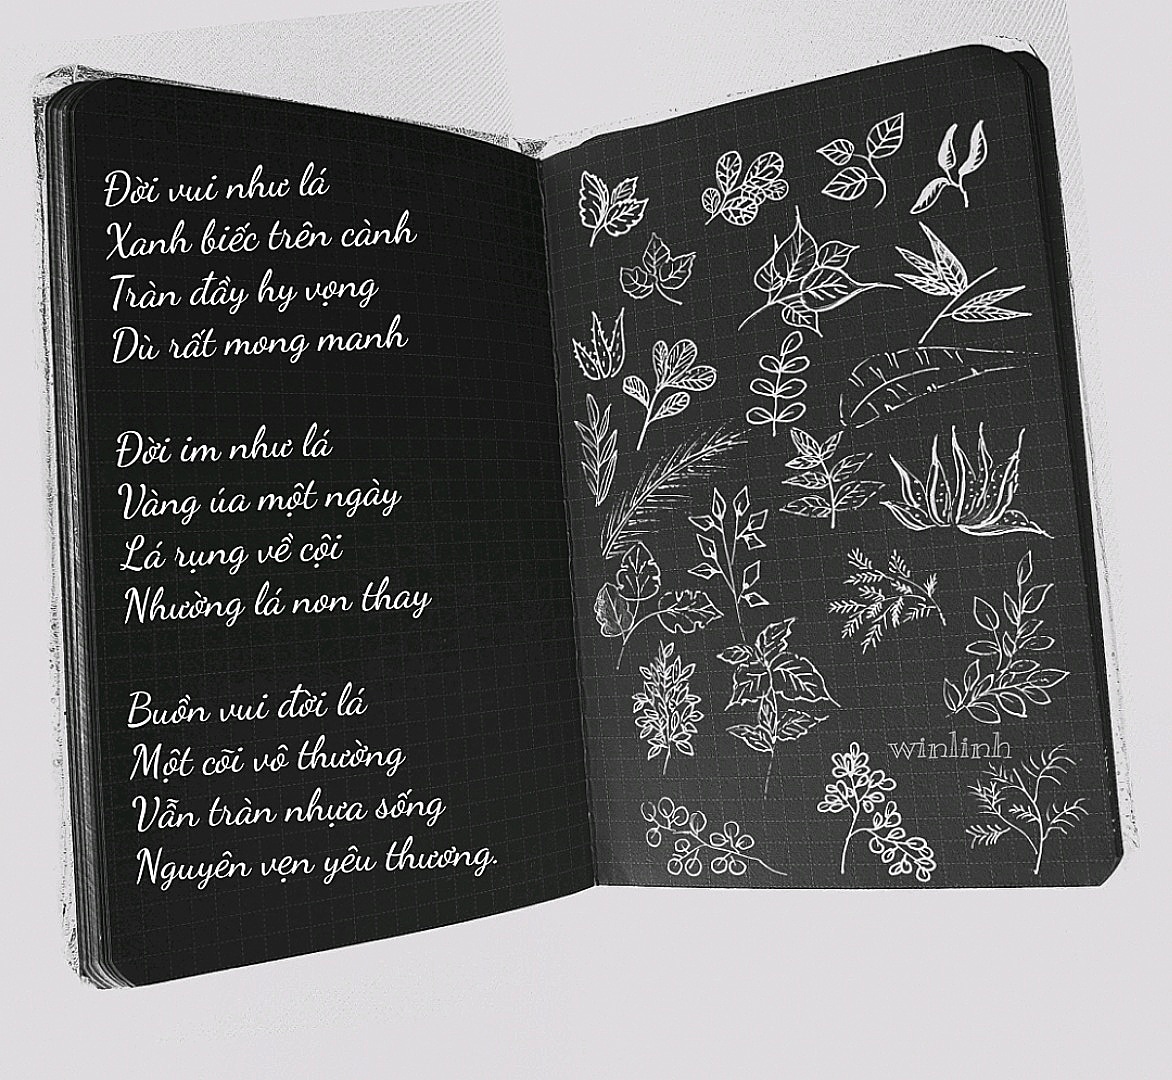 Đời vui như lá
Xanh biếc trên cành
Tràn đầy hy vọng
Dù rất mong manh
Đời im như lá
Vàng úa một ngày
Lá rụng về cội
Nhường lá non thay
Buồn vui đời lá
Một cõi vô thường
Vẫn tràn nhựa sống
Nguyên vẹn yêu thương.
winlinh